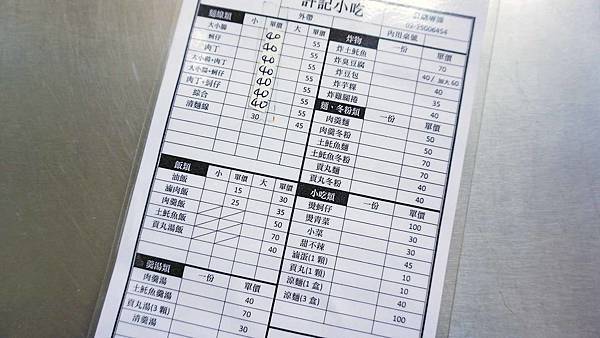 許記小吃
02-25006454
外帶 內用桌號
麵線類 小 單價 大 單價
大小腸 40 55
蚵仔 40 55
肉丁 40 55
大小腸+肉丁 40 55
大小腸+蚵仔 40 55
肉丁+蚵仔 40 55
綜合 40 55
清麵線 30 45
飯類 小 單價 大 單價
油飯 15 30
滷肉飯 25 35
肉羹飯 50
土魠魚飯 70
貢丸湯飯 40
羹湯類 一份 單價
肉羹湯 40
土魠魚羹湯 70
貢丸湯(3顆) 30
清羹湯
炸物 一份 單價
炸土魠魚 70
炸臭豆腐 40 / 加大60
炸豆包 40
炸芋粿 35
炸雞腿捲 40
麵、冬粉類 一份 單價
肉羹麵 50
肉羹冬粉 50
土魠魚麵 70
土魠魚冬粉 70
貢丸麵 40
貢丸冬粉 40
小吃類 一份 單價
燙蚵仔 100
燙青菜 30
小菜 30
甜不辣 45
滷蛋(1顆) 10
貢丸(1顆) 10
涼麵(1盒) 40
涼麵(3盒) 100